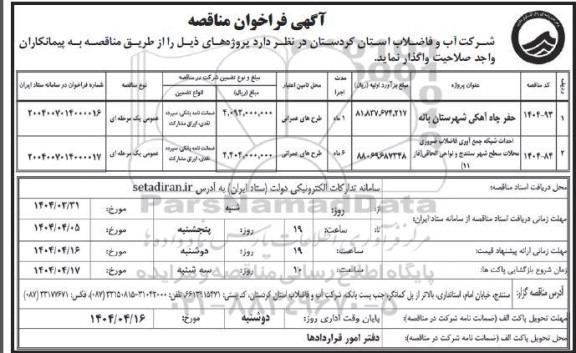 آگهی فراخوان مناقصه
شرکت آب و فاضلاب استان کردستان در نظر دارد پروژه‌های ذیل را از طریق مناقصه به پیمانکاران
واجد صلاحیت واگذار نماید.
ردیف کد مناقصه عنوان پروژه مبلغ برآورد اولیه (ریال) مدت اجرا محل تامین اعتبار مبلغ و نوع تضمین شرکت در مناقصه نوع مناقصه شماره فراخوان در سامانه ستاد ایران
مبلغ (ریال) انواع تضمین
۱ ۱۴۰۴-۹۳ حفر چاه آهکی شهرستان بانه ۸۱,۸۳۷,۶۷۴,۲۱۷ ۱ ماه طرح های عمرانی ۴,۰۹۳,۰۰۰,۰۰۰ ضمانت نامه بانکی، سپرده نقدی، اوراق مشارکت عمومی یک مرحله ای ۲۰۰۴۰۰۷۰۱۴۰۰۰۰۱۶
۲ ۱۴۰۴-۸۴ احداث شبکه جمع آوری فاضلاب ضروری محلات سطح شهر سنندج و نواحی الحاقی(فاز ۱۱) ۸۸,۰۶۹,۶۸۷,۲۴۸ ۶ ماه طرح های عمرانی ۴,۴۰۴,۰۰۰,۰۰۰ ضمانت نامه بانکی، سپرده نقدی، اوراق مشارکت عمومی یک مرحله ای ۲۰۰۴۰۰۷۰۱۴۰۰۰۰۱۷
محل دریافت اسناد مناقصه: سامانه تدارکات الکترونیکی دولت (ستاد ایران) به آدرس setadiran.ir
مهلت زمانی دریافت اسناد مناقصه از سامانه ستاد ایران: از روز: شنبه مورخ: ۱۴۰۴/۰۳/۳۱
تا ساعت: ۱۹ روز: پنجشنبه مورخ: ۱۴۰۴/۰۴/۰۵
مهلت زمانی ارائه پیشنهاد قیمت: ساعت: ۱۹ روز: دوشنبه مورخ: ۱۴۰۴/۰۴/۱۶
زمان شروع بازگشایی پاکت ها: ساعت: ۱۰ روز: سه شنبه مورخ: ۱۴۰۴/۰۴/۱۷
آدرس مناقصه گزار: سنندج، خیابان امام، استانداری، بالاتر از پل کمانگر، جنب پست بانک، شرکت آب و فاضلاب استان کردستان، کد پستی: ۶۶۱۳۹۱۵۴۷۱ تلفن: ۳۱۰۴۲۰۰۰-۳۳۱۵۰۸۱۵ (۰۸۷)، فکس: ۳۳۱۷۷۶۷۱ (۰۸۷)
مهلت تحویل پاکت الف (ضمانت نامه شرکت در مناقصه): پایان وقت اداری روز: دوشنبه ۱۴۰۴/۰۴/۱۶
محل تحویل پاکت الف (ضمانت نامه شرکت در مناقصه): دفتر امور قراردادها